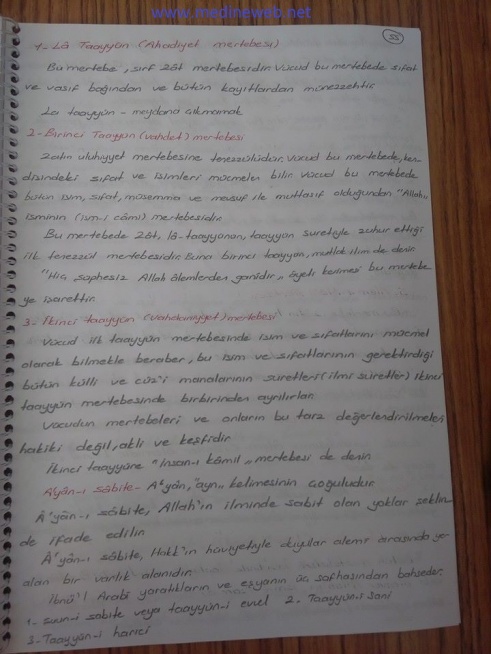 www.medineweb.net
33
1- Lâ Taayyün (Ahadiyet mertebesi)
Bu mertebe, sırf Zât mertebesidir. Vücud bu mertebede sıfat
ve vasıf bağından ve bütün kayıtlardan münezzehtir.
La taayyün - meydana çıkmamak
2- Birinci Taayyün (vahdet) mertebesi
Zatın uluhiyyet mertebesine tenezzülüdür. Vücud bu mertebede, ken-
disindeki sıfat ve isimleri mücmelen bilir. Vücud bu mertebede
bütün isim, sıfat, müsemma ve mevsuf ile muttasıf olduğundan "Allah"
isminin (ism-i câmi) mertebesidir.
Bu mertebede Zât, lâ-taayyünün, taayyün suretiyle zuhur ettiği
ilk tenezzül mertebesidir. Buna birinci taayyün, mutlak ilim de denir.
"Hiç şüphesiz Allah âlemlerden ganidir" âyeti kerimesi bu mertebe
ye işarettir.
3- İkinci taayyün (vahdaniyyet) mertebesi
Vücud ilk taayyün mertebesinde isim ve sıfatlarını mücmel
olarak bilmekle beraber, bu isim ve sıfatlarının gerektirdiği
bütün külli ve cüz'i manalarının suretleri (ilmi suretler) ikinci
taayyün mertebesinde birbirinden ayrılırlar.
Vücudun mertebeleri ve onların bu tarz değerlendirilmeleri
hakiki değil, akli ve keşfidir.
İkinci taayyüne "insan-ı kâmil" mertebesi de denir.
A'yân-ı sâbite - A'yân, "ayn" kelimesinin çoğuludur.
A'yân-ı sâbite, Allah'ın ilminde sabit olan yoklar şeklin-
de ifade edilir.
A'yân-ı sâbite, Hakk'ın hüviyetiyle şeyler alemi arasında yer
alan bir varlık alanıdır.
İbnü'l Arabi yaratılışın ve eşyanın üç safhasından bahseder.
1- sabite veya taayyün-i evvel 2. Taayyün-i sani
3- Taayyün-i harici